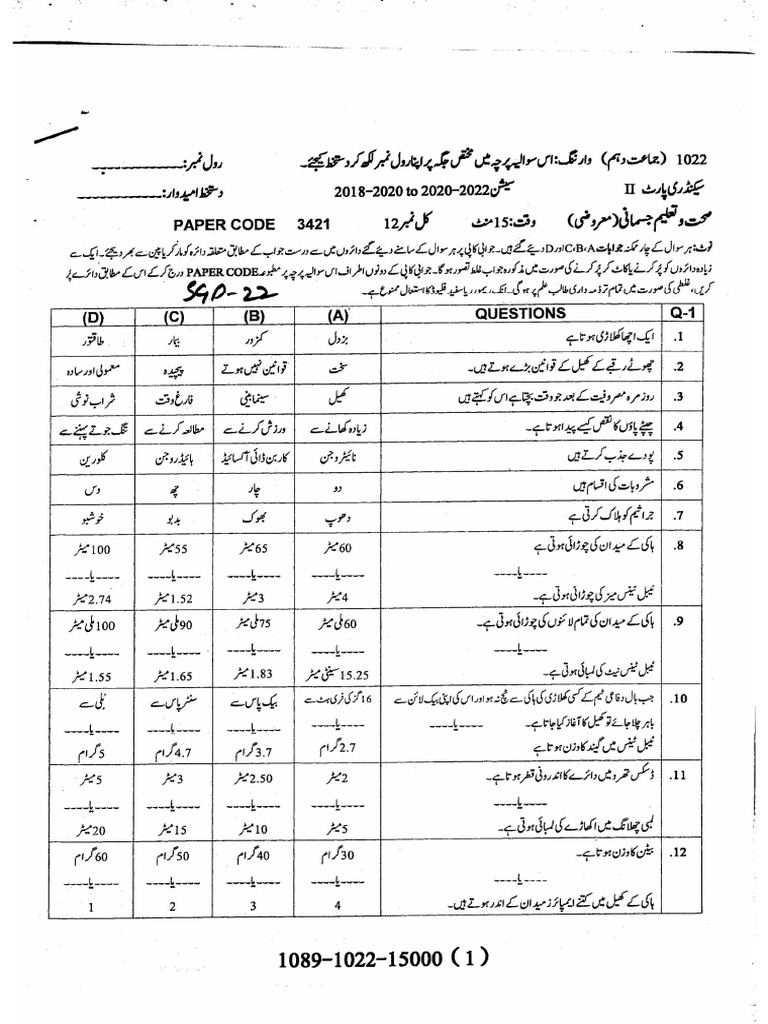 1022 (جماعت دہم) وارننگ: اس سوالیہ پرچہ میں مختص جگہ پر اپنا رول نمبر لکھ کر دستخط کیجئے۔ رول نمبر: ____________
سیکنڈری پارٹ II سیشن 2018-2020 to 2020-2022 دستخط امیدوار: ____________
صحت و تعلیم جسمانی (معروضی) وقت: 15 منٹ کل نمبر 12 PAPER CODE 3421
نوٹ: ہر سوال کے چار ممکنہ جوابات C، B، A اور D دیئے گئے ہیں۔ جوابی کاپی پر ہر سوال کے سامنے دیئے گئے دائروں میں سے درست جواب کے مطابق متعلقہ دائرہ کو مارکر یا پین سے بھر دیجئے۔ ایک سے
زیادہ دائروں کو پُر کرنے یا کاٹ کر پُر کرنے کی صورت میں مذکورہ جواب غلط تصور ہوگا۔ جوابی کاپی کے دونوں اطراف اس سوالیہ پرچہ پر مطبوعہ PAPER CODE درج کر کے اس کے مطابق دائرے پُر
کریں، غلطی کی صورت میں تمام تر ذمہ داری طالب علم پر ہوگی۔ انک ریموور یا سفید فلیوڈ کا استعمال ممنوع ہے۔ SGD-22
Q-1 QUESTIONS (A) (B) (C) (D)
1. ایک اچھا کھلاڑی ہوتا ہے بزدل کمزور بیمار طاقتور
2. چھوٹے رقبے کے کھیل کے قوانین بڑے ہوتے ہیں۔ سخت قوانین نہیں ہوتے پیچیدہ معمولی اور سادہ
3. روزمرہ مصروفیت کے بعد جو وقت بچتا ہے اس کو کہتے ہیں کھیل سینما بینی فارغ وقت شراب نوشی
4. چپٹے پاؤں کا نقص کیسے پیدا ہوتا ہے۔ زیادہ کھانے سے ورزش کرنے سے مطالعہ کرنے سے تنگ جوتے پہننے سے
5. پودے جذب کرتے ہیں نائیٹروجن کاربن ڈائی آکسائیڈ ہائیڈروجن کلورین
6. مشروبات کی اقسام ہیں دو چار چھ دس
7. جراثیم کو ہلاک کرتی ہے دھوپ بھوک بدبو خوشبو
8. ہاکی کے میدان کی چوڑائی ہوتی ہے 60 میٹر 65 میٹر 55 میٹر 100 میٹر
----یا---- ----یا---- ----یا---- ----یا---- ----یا----
ٹیبل ٹینس میز کی چوڑائی ہوتی ہے۔ 4 میٹر 3 میٹر 1.52 میٹر 2.74 میٹر
9. ہاکی کے میدان کی تمام لائنوں کی چوڑائی ہوتی ہے۔ 60 ملی میٹر 75 ملی میٹر 90 ملی میٹر 100 ملی میٹر
----یا---- ----یا---- ----یا---- ----یا---- ----یا----
ٹیبل ٹینس نیٹ کی لمبائی ہوتی ہے۔ 15.25 سینٹی میٹر 1.83 میٹر 1.65 میٹر 1.55 میٹر
10. جب بال دفاعی ٹیم کے کسی کھلاڑی کی ہاکی سے ٹچ نہ ہو اور اس کی اپنی بیک لائن سے 16 گز کی فری ہٹ سے بیک پاس سے سنٹر پاس سے بُلی سے
باہر چلا جائے تو کھیل کا آغاز کیا جاتا ہے۔ ----یا---- ----یا---- ----یا---- ----یا---- ----یا----
ٹیبل ٹینس میں گیند کا وزن ہوتا ہے 2.7 گرام 3.7 گرام 4.7 گرام 5 گرام
11. ڈسکس تھرو میں دائرے کا اندرونی قطر ہوتا ہے۔ 2 میٹر 2.50 میٹر 3 میٹر 5 میٹر
----یا---- ----یا---- ----یا---- ----یا----
لمبی چھلانگ میں اکھاڑے کی لمبائی ہوتی ہے۔ 5 میٹر 10 میٹر 15 میٹر 20 میٹر
12. بیٹن کا وزن ہوتا ہے۔ 30 گرام 40 گرام 50 گرام 60 گرام
----یا---- ----یا---- ----یا---- ----یا---- ----یا----
ہاکی کے کھیل میں کتنے ایمپائرز میدان کے اندر ہوتے ہیں۔ 4 3 2 1
1089-1022-15000 (1)